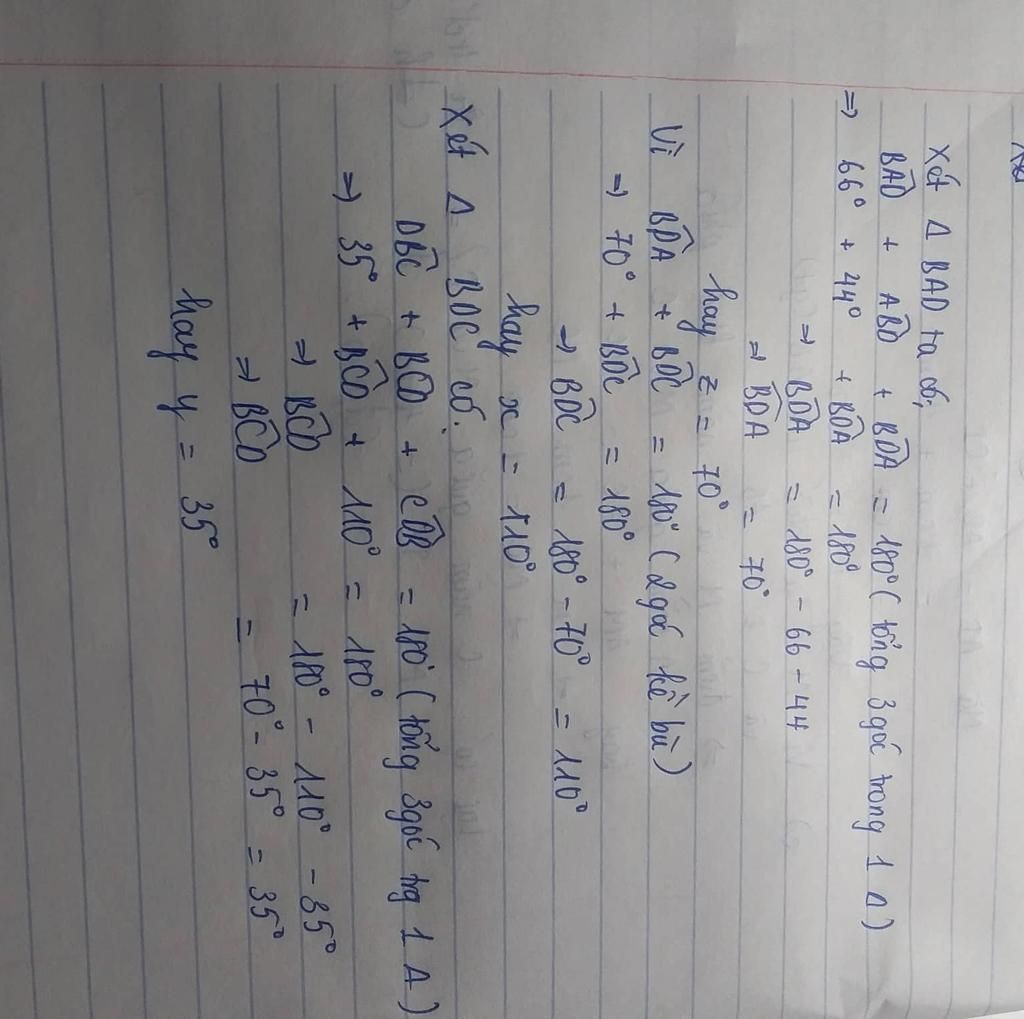 Xét Δ BAD ta có;
BAD̂ + AB̂D + BD̂A = 180° (tổng 3 góc trong 1 Δ)
⇒ 66° + 44° + BD̂A = 180°
⇒ BD̂A = 180° - 66 - 44
⇒ BD̂A = 70°
hay z = 70°
Vì BD̂A + BD̂C = 180° (2 góc kề bù)
⇒ 70° + BD̂C = 180°
⇒ BD̂C = 180° - 70° = 110°
hay x = 110°
Xét Δ BDC có.
DB̂C + BĈD + CD̂B = 180° (tổng 3 góc trg 1 Δ)
⇒ 35° + BĈD + 110° = 180°
⇒ BĈD = 180° - 110° - 35°
⇒ BĈD = 70° - 35° = 35°
hay y = 35°